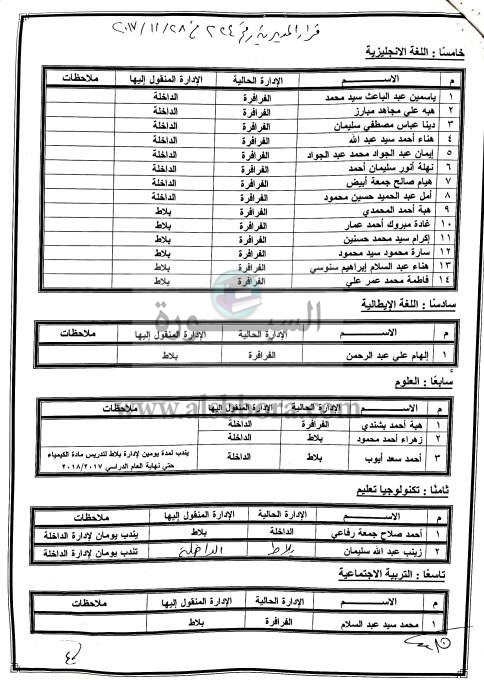 قرار المديرية رقم ٢٢٤ في ٢٨/١١/٢٠١٧
خامسًا : اللغة الانجليزية
م الاســـم الإدارة الحالية الإدارة المنقول إليها ملاحظات
١ ياسمين عبد الباعث سيد محمد الفرافرة الداخلة
٢ هبه علي مجاهد مبارز الفرافرة الداخلة
٣ دينا عباس مصطفي سليمان الفرافرة الداخلة
٤ هناء أحمد سيد عبد الله الفرافرة الداخلة
٥ إيمان عبد الجواد محمد عبد الجواد الفرافرة الداخلة
٦ نهلة أنور سليمان أحمد الفرافرة الداخلة
٧ هيام صالح جمعة أبيض الفرافرة الداخلة
٨ أمل عبد الحميد حسين محمود الفرافرة الداخلة
٩ هبة أحمد المحمدي الفرافرة بلاط
١٠ غادة مبروك أحمد عمار الفرافرة بلاط
١١ إكرام سيد محمد حسنين الفرافرة بلاط
١٢ سارة محمود سيد محمود الفرافرة بلاط
١٣ هناء عبد السلام إبراهيم سنوسي الفرافرة بلاط
١٤ فاطمة محمد عمر علي الفرافرة بلاط
السبورة
سادسًا : اللغة الإيطالية
م الاســـم الإدارة الحالية الإدارة المنقول إليها ملاحظات
١ إلهام علي عبد الرحمن الفرافرة بلاط
سابعًا : العلوم
www.alsbbora.com
م الاســـم الإدارة الحالية الإدارة المنقول إليها ملاحظات
١ هبة أحمد بشندي الفرافرة الداخلة
٢ زهراء أحمد محمود بلاط الداخلة
٣ أحمد سعد أيوب بلاط الداخلة يندب لمدة يومين لإدارة بلاط لتدريس مادة الكيمياء
حتي نهاية العام الدراسي ٢٠١٨/٢٠١٧
ثامنًا : تكنولوجيا تعليم
م الاســـم الإدارة الحالية الإدارة المنقول إليها ملاحظات
١ أحمد صلاح جمعة رفاعي الداخلة بلاط يندب يومان لإدارة الداخلة
٢ زينب عبد الله سليمان بلاط الداخلة تندب يومان لإدارة الداخلة
تاسعًا : التربية الاجتماعية
م الاســـم الإدارة الحالية الإدارة المنقول إليها ملاحظات
١ محمد سيد عبد السلام الفرافرة بلاط